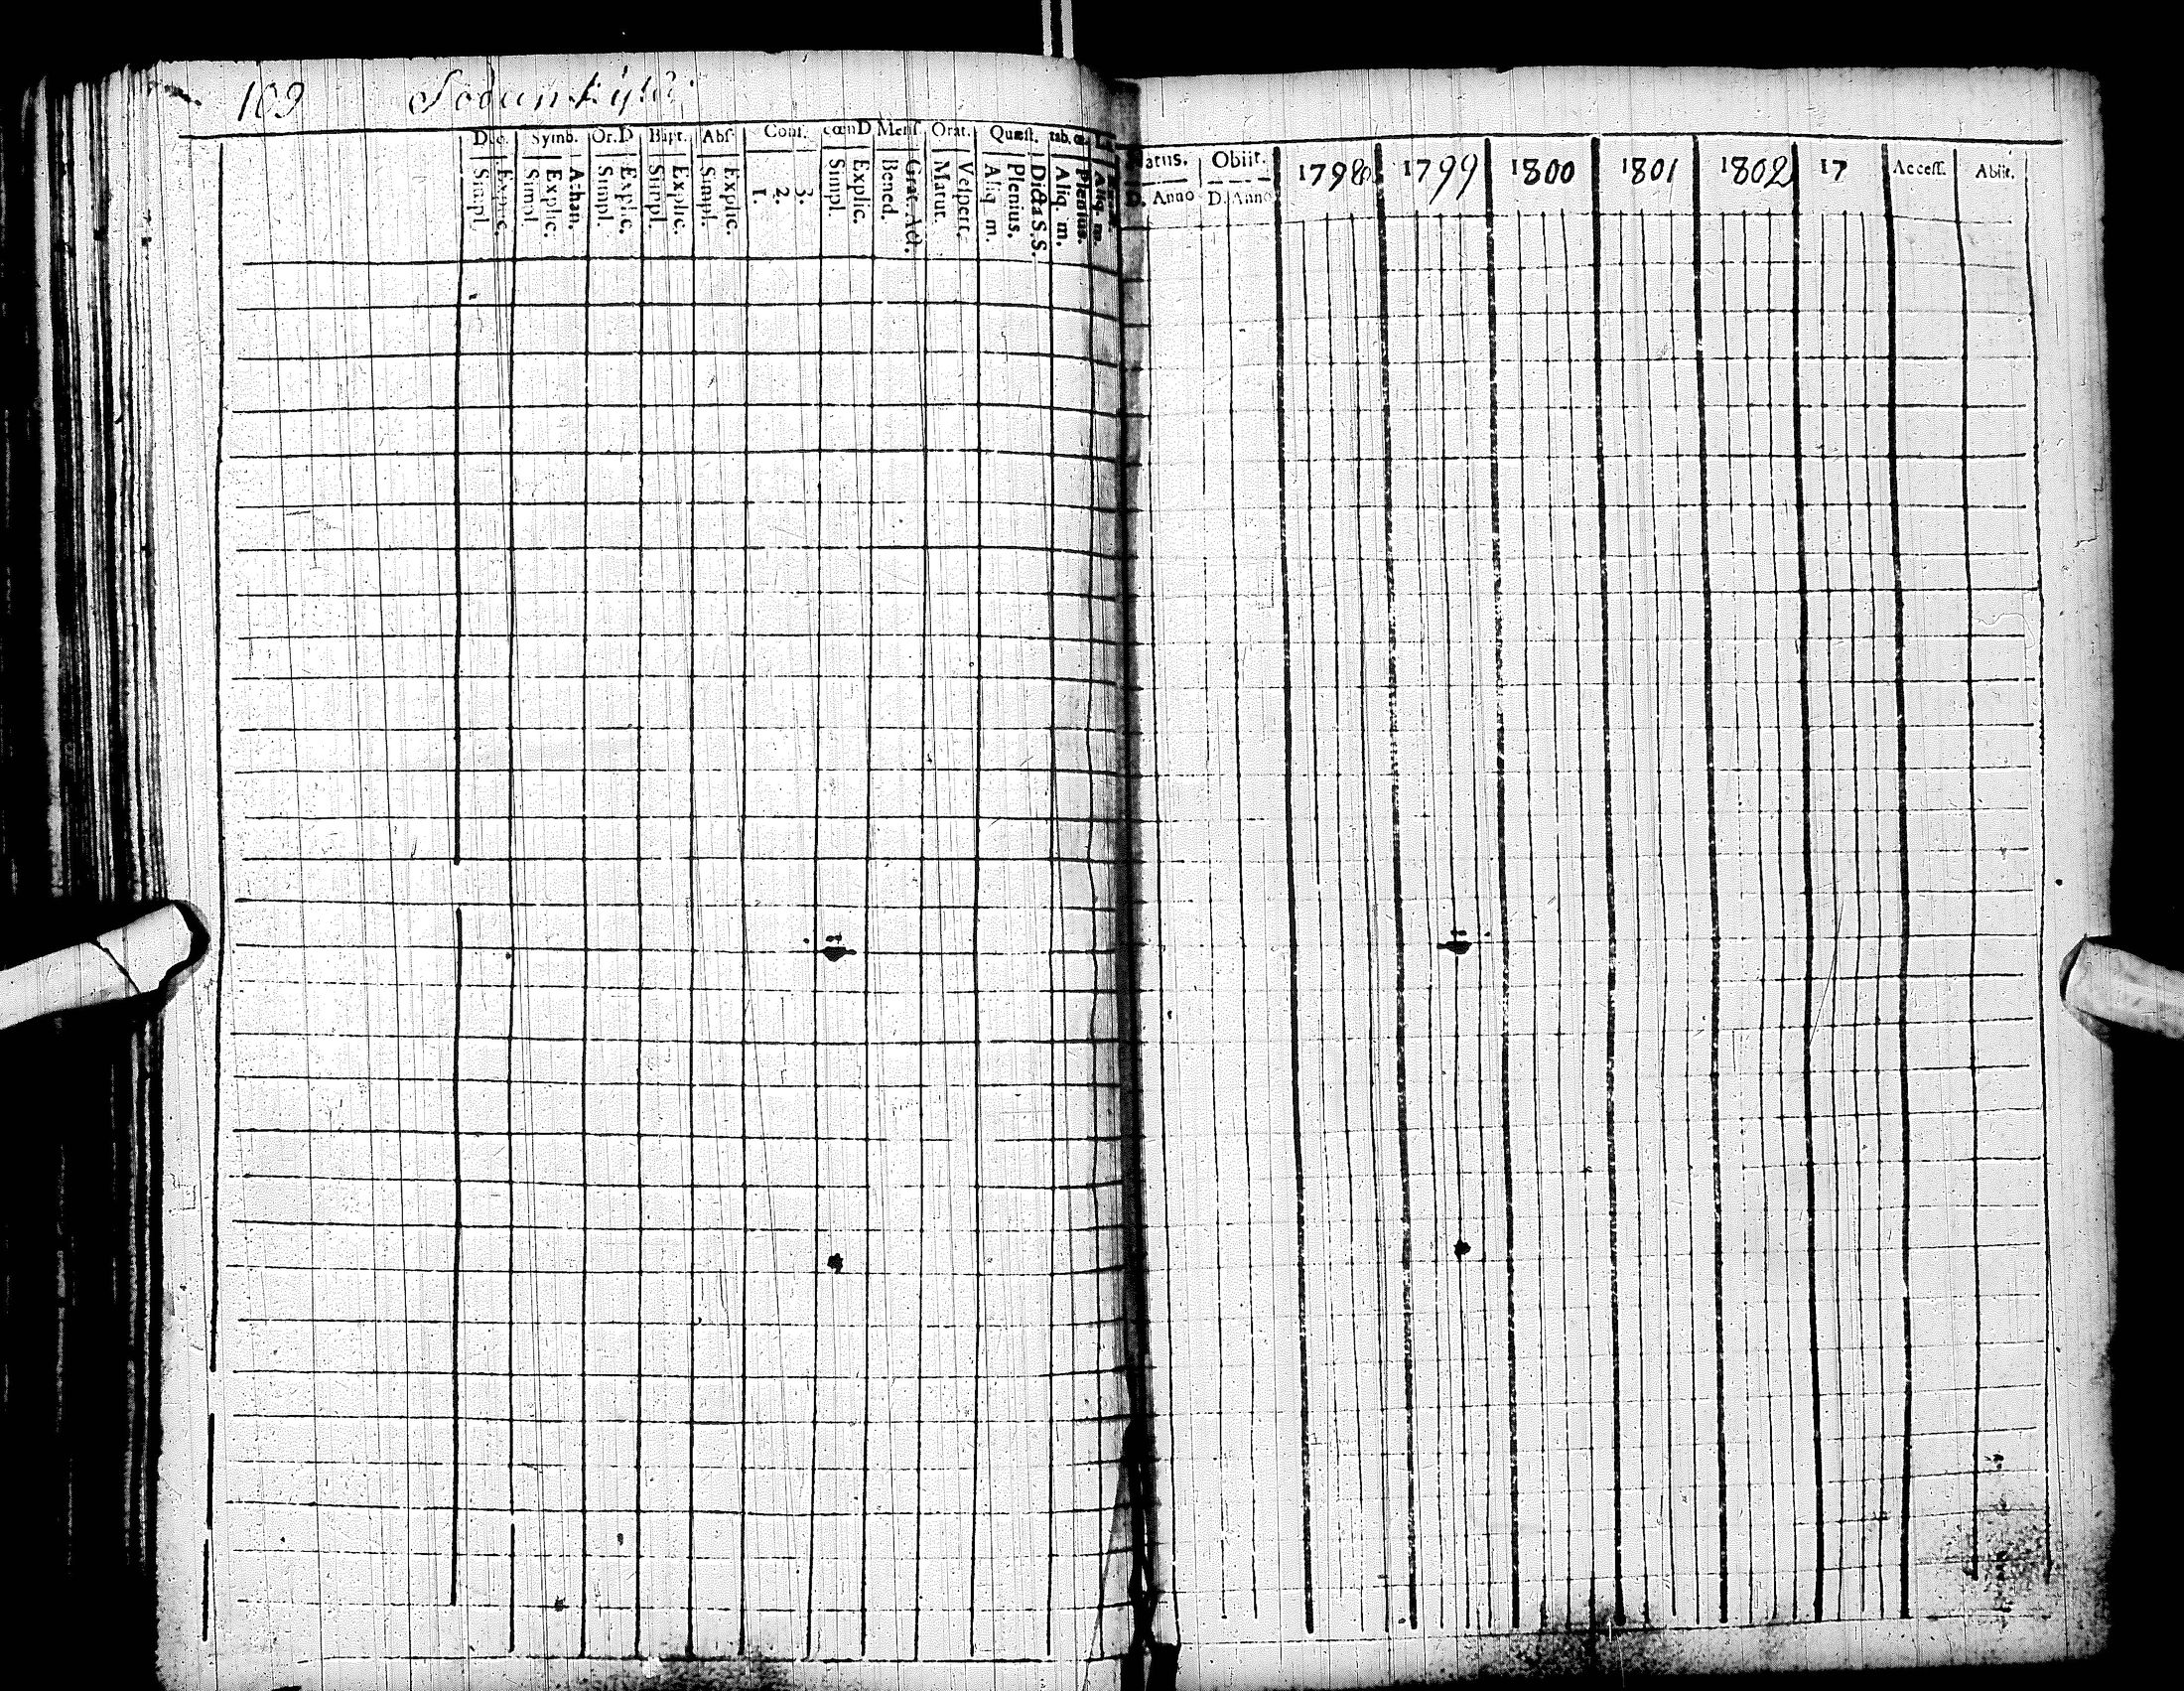 109 Sodunkylä
Dec. Symb. Or.D Bapt. Abs. Conf. cœnD Mens. Orat. Quæst. tab.œ.
Simpl. Explic. Simpl. Explic. Athan. Simpl. Explic. Simpl. Explic. Simpl. Explic. 1. 2. 3. Simpl. Explic. Bened. Grat. Act. Matut. Vespert. Aliq. m. Plenius. Dicta S.S. Aliq. m. Plenius. Aliq. m.
Natus. Obiit. 1798 1799 1800 1801 1802 17 Access. Abiit.
D. Anno D. Anno